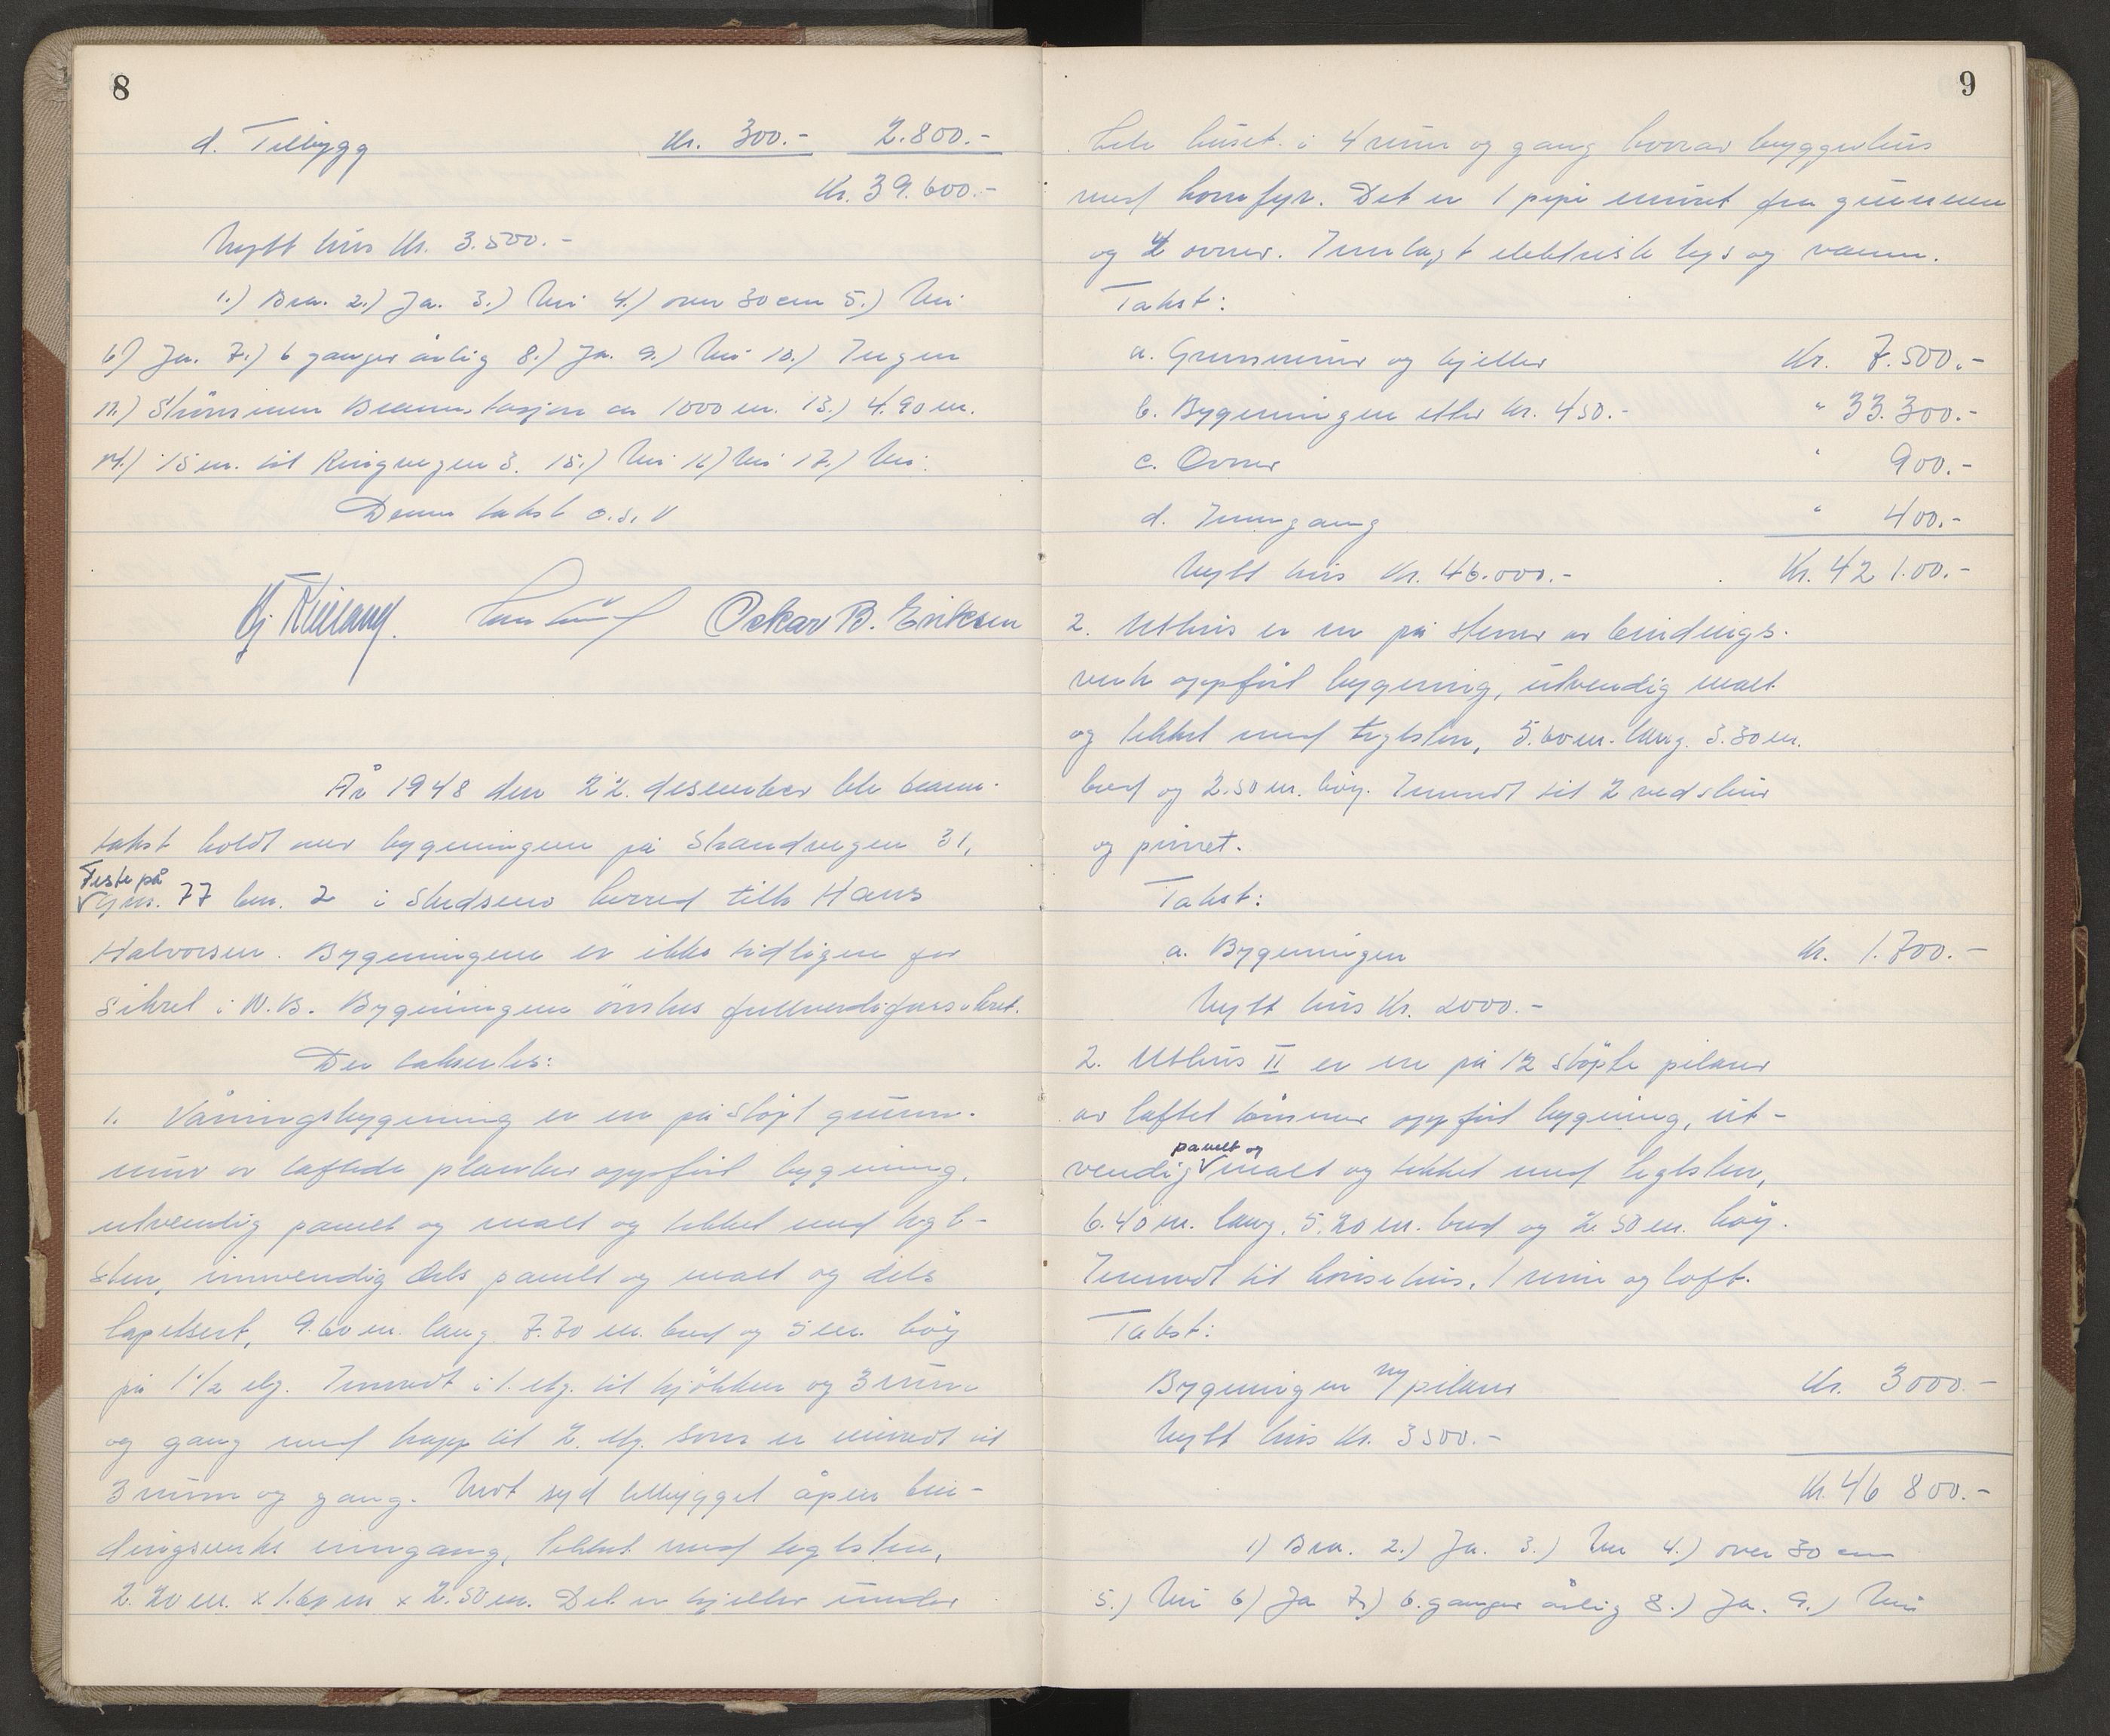 8
d. Tilbygg Kr. 300.- 2.800.-
Kr. 39.600.-
Nytt hus Kr. 3.500.-
1.) Bra. 2.) Ja. 3.) Nei 4.) over 30 cm 5.) Nei
6) Ja. 7.) 6 ganger årlig 8.) Ja. 9.) Nei 10.) Ingen
11.) Strømmen Brannstasjon ca 1000 m. 13.) 4.90 m.
14.) 15 m. til Ringvegen 3. 15.) Nei 16) Nei 17.) Nei.
Denne takst o.s.v
Oskar B. Eriksen
År 1948 den 22. desember ble brann-
takst holdt over bygningen på Strandvegen 31,
Feste på
Gnr. 77 bnr. 2 i Skedsmo herred tilh Hans
Halvorsen. Bygningene er ikke tidligere for
sikret i N.B. Bygningene ønskes fullverdiforsikret.
Der takseres:
1. Våningsbygning er en på støpt grunn-
mur av laftede planker oppført bygning,
utvendig panelt og malt og tekket med tegl-
sten, innvendig dels panelt og malt og dels
tapetsert, 9.60 m. lang 7.70 m. bred og 5 m. høy
på 1 1/2 etg. Innredt i 1. etg. til kjøkken og 3 rum
og gang med trapp til 2. etg. som er innredt til
3 rum og gang. Mot syd tilbygget åpen bin-
dingsverks inngang, tekket med teglsten,
2.20 m. x 1.60 m x 2.50 m. Det er kjeller under
9
hele huset i 4 rum og gang hvorav bryggerhus
med komfyr. Det er 1 pipe muret fra grunnen
og 4 ovner. Innlagt elektrisk lys og vann.
Takst:
a. Grunnmur og kjeller Kr. 7.500.-
b. Bygningen etter Kr. 450.- " 33.300.-
c. Ovner " 900.-
d. Inngang " 400.-
Nytt hus Kr. 46.000.- Kr. 42 100.-
2. Uthus er en på stener av bindings-
verk oppført bygning, utvendig malt
og tekket med teglsten, 5.60 m. lang. 3.30 m.
bred og 2.50 m. høy. Innredt til 2 vedskur
og privet.
Takst:
a. Bygningen Kr. 1.700.-
Nytt hus Kr. 2000.-
2. Uthus II er en på 12 støpte pilarer
av laftet tømmer oppført bygning, ut-
panelt og
vendig malt og tekket med teglsten,
6.40 m. lang, 5.20 m. bred og 2.50 m. høy.
Innredt til hønsehus, 1 rum og loft.
Takst:
Bygningen m/pilarer Kr. 3000.-
Nytt hus Kr. 3500.-
Kr. 46 800.-
1) Bra. 2.) Ja. 3.) Nei 4.) over 30 cm
5.) Nei 6) Ja 7.) 6. ganger årlig 8.) Ja. 9.) Nei